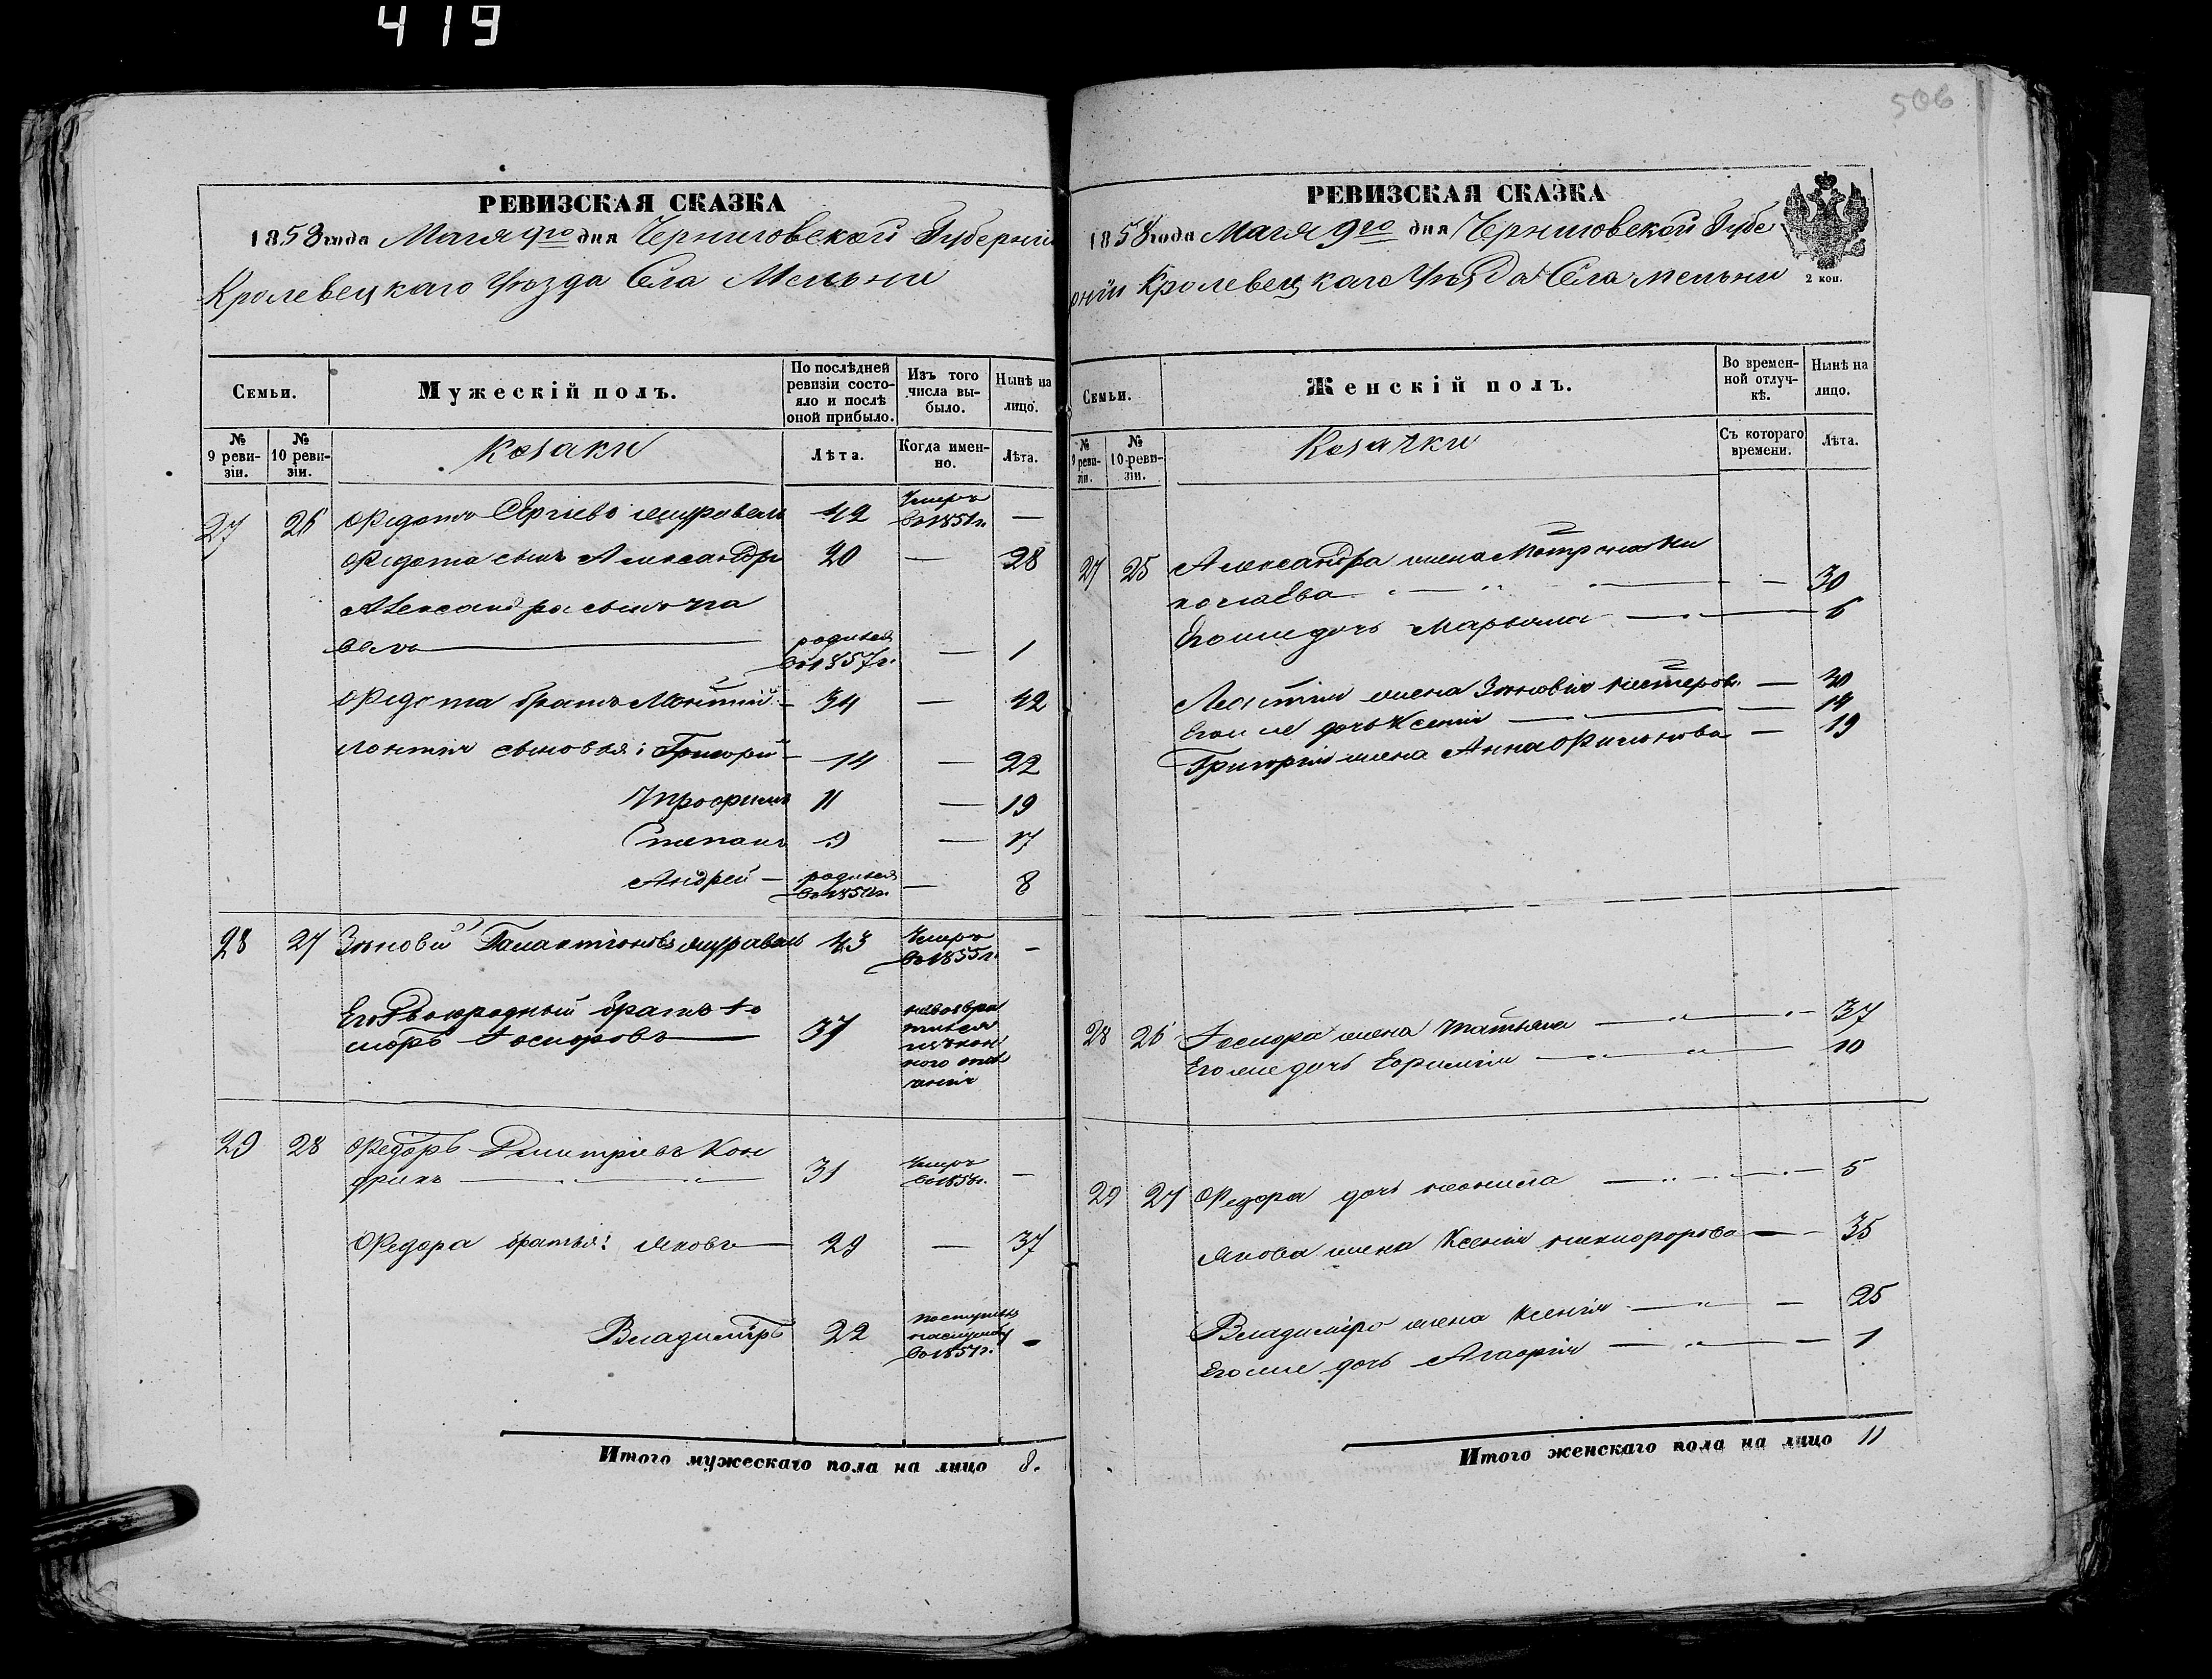 419
506
РЕВИЗСКАЯ СКАЗКА
1858 года Маія 9го дня Черниговской Губерніи
Кролевецкаго Уѣзда Села Мельни
Семьи.
Мужескій полъ.
По послѣдней ревизіи состояло и послѣ оной прибыло.
Изъ того числа выбыло.
Нынѣ на лицо.
№ 9 ревизіи.
№ 10 ревизіи.
Козаки
Лѣта.
Когда именно.
Лѣта.
27 26 Федотъ Сергіевъ 42 Умеръ въ 1851г. —
Федота сынъ Александръ 20 — 28
Александра сынъ Па
велъ — родился въ 1857г. — 1
Федота братъ Леонтій — 34 — 42
Леонтія сыновья: Григорій — 14 — 22
Трофимъ 11 — 19
Степанъ 9 — 17
Андрей — родился въ 1850г. — 8
28 27 Зѣновій 43 Умеръ въ 1855г. —
Его Двоюродный братъ Ѳе
доръ 37
29 28 Федоръ Дмитріевъ Кон
дрикъ — 31 Умеръ —
Федора братья: Яковъ — 29 — 37
Владиміръ 22 поступилъ на службу въ 1851г. —
Итого мужескаго пола на лицо 8.
РЕВИЗСКАЯ СКАЗКА
1858 года Маія 9го дня Черниговской Губе
рніи Кролевецкаго Уѣзда Села Мельни
2 коп.
Семьи.
Женскій полъ.
Во временной отлучкѣ.
Нынѣ на лицо.
№ 9 ревизіи.
№ 10 ревизіи.
Козачки
Съ котораго времени.
Лѣта.
27 25 Александра жена Мотрона Ни
колаева — 30
Его же дочь Марьяна — 6
Леонтія жена Зѣновія Нестерова — 40
Его же дочь Ксенія — 14
Григорія жена Анна Филипова — 19
28 26 жена Татьяна — 37
Его же дочь Евфимія — 10
29 27 Федора дочь Неонила — 5
Якова жена Ксенія Никифорова — 35
Владиміра жена Ксенія — 25
Его же дочь Агафія — 1
Итого женскаго пола на лицо 11